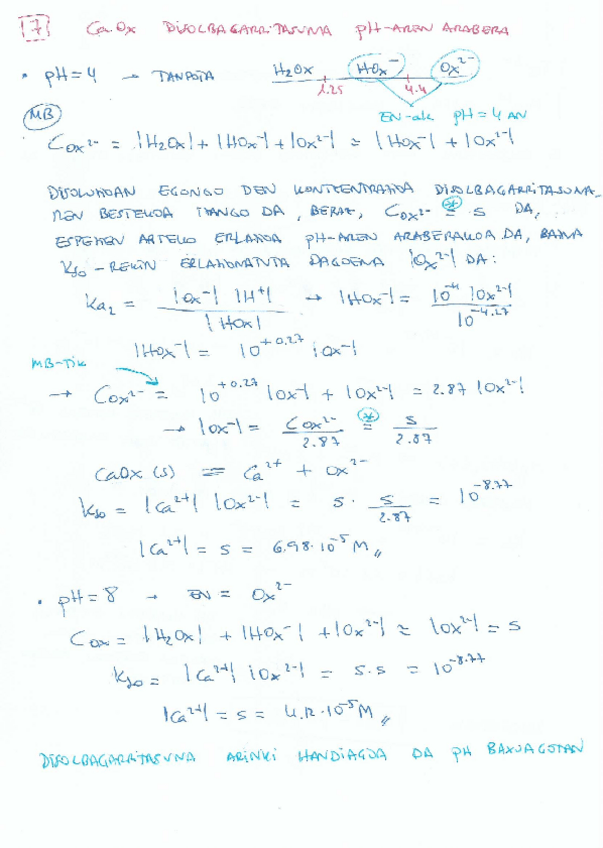 7 CaOx DISOLBAGARRITASUNA pH-AREN ARABERA
• pH=4 → TANPOIA H₂Ox HOx⁻ Ox²⁻
1.25 4.4
MB EN-ak pH=4 AN
C_Ox²⁻ = |H₂Ox| + |HOx⁻| + |Ox²⁻| ≈ |HOx⁻| + |Ox²⁻|
DISOLUZIOAN EGONGO DEN KONTZENTRAZIOA DISOLBAGARRITASUNA-
REN BESTEKOA IZANGO DA, BERAZ, C_Ox²⁻ = s DA,
ESPEZIEEN ARTEKO ERLAZIOA pH-AREN ARABERAKOA DA, BAINA
Kso-REKIN ERLAZIONATUTA DAGOENA |Ox²⁻| DA:
Ka₂ = |Ox⁻| |H⁺| / |HOx| → |HOx⁻| = 10⁻⁴ |Ox²⁻| / 10^-4.27
|HOx⁻| = 10^+0.27 |Ox⁻|
MB-TIK
→ C_Ox²⁻ = 10^+0.27 |Ox⁻| + |Ox²⁻| = 2.87 |Ox²⁻|
→ |Ox⁻| = C_Ox²⁻ / 2.87 = s / 2.87
CaOx (s) ⇌ Ca²⁺ + Ox²⁻
Kso = |Ca²⁺| |Ox²⁻| = s · s / 2.87 = 10^-8.77
|Ca²⁺| = s = 6.98·10⁻⁵ M
• pH=8 → EN = Ox²⁻
C_Ox = |H₂Ox| + |HOx⁻| + |Ox²⁻| ≈ |Ox²⁻| = s
Kso = |Ca²⁺| |Ox²⁻| = s·s = 10^-8.77
|Ca²⁺| = s = 4.12·10⁻⁵ M
DISOLBAGARRITASUNA ARINKI HANDIAGOA DA pH BAXUAGOTAN